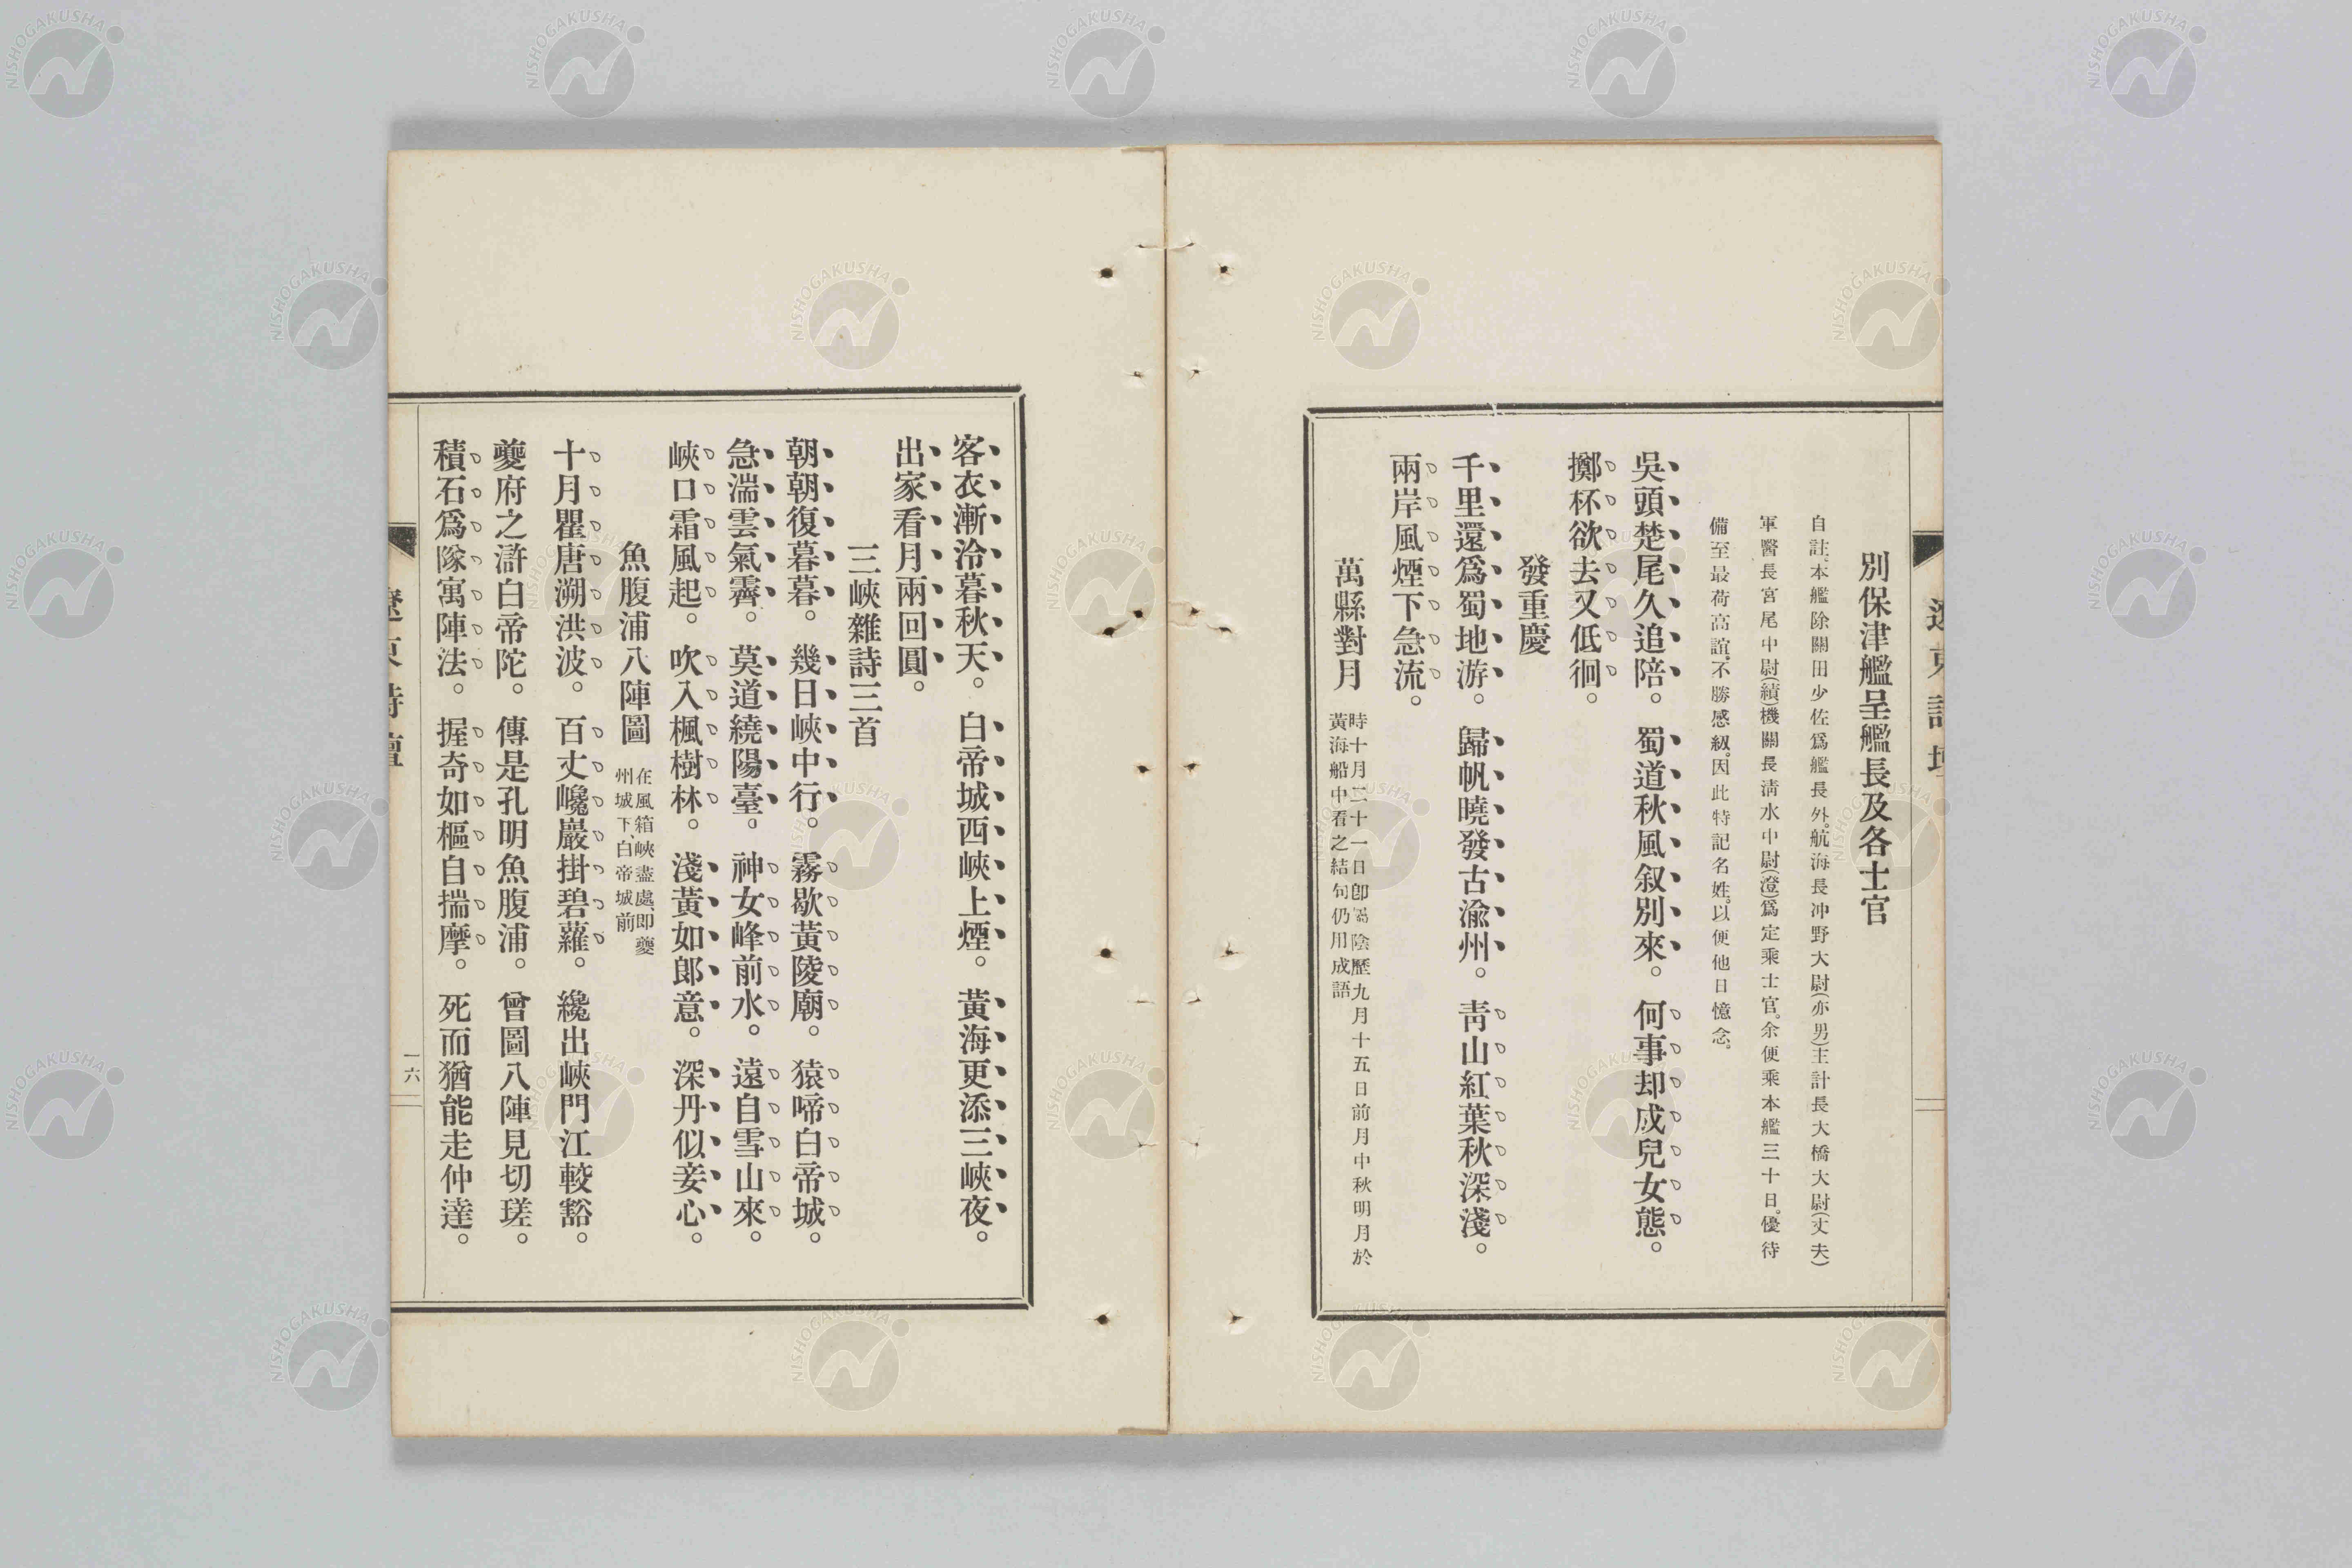 別保津艦呈艦長及各士官
自註、本艦除關田少佐爲艦長外。航海長冲野大尉(亦男)主計長大橋大尉(丈夫)
軍醫長宮尾中尉(績)機關長淸水中尉(澄)爲定乘士官。余便乘本艦三十日。優待
備至最荷高誼、不勝感紉。因此特記名姓。以便他日憶念。
吳頭楚尾久追陪。蜀道秋風叙別來。何事却成兒女態。
擲杯欲去又低徊。
發重慶
千里還爲蜀地游。歸帆曉發古渝州。靑山紅葉秋深淺。
兩岸風煙下急流。
萬縣對月
時十月二十一日卽舊陰歷九月十五日前月中秋明月於
黃海船中看之結句仍用成語
遼東詩壇
客衣漸冷暮秋天。白帝城西峽上煙。黃海更添三峽夜。
出家看月兩回圓。
三峽雜詩三首
朝朝復暮暮。幾日峽中行。霧歇黃陵廟。猿啼白帝城。
急湍雲氣霽。莫道繞陽臺。神女峰前水。遠自雪山來。
峽口霜風起。吹入楓樹林。淺黃如郞意。深丹似妾心。
魚腹浦八陣圖
在風箱峽盡處、卽夔
州城下、白帝城前
十月瞿唐溯洪波。百丈巉巖掛碧蘿。纔出峽門江較豁。
夔府之滸白帝陀。傳是孔明魚腹浦。曾圖八陣見切瑳。
積石爲隊寓陣法。握奇如樞自揣摩。死而猶能走仲達。
遼東詩壇
一六
NISHOGAKUSHA